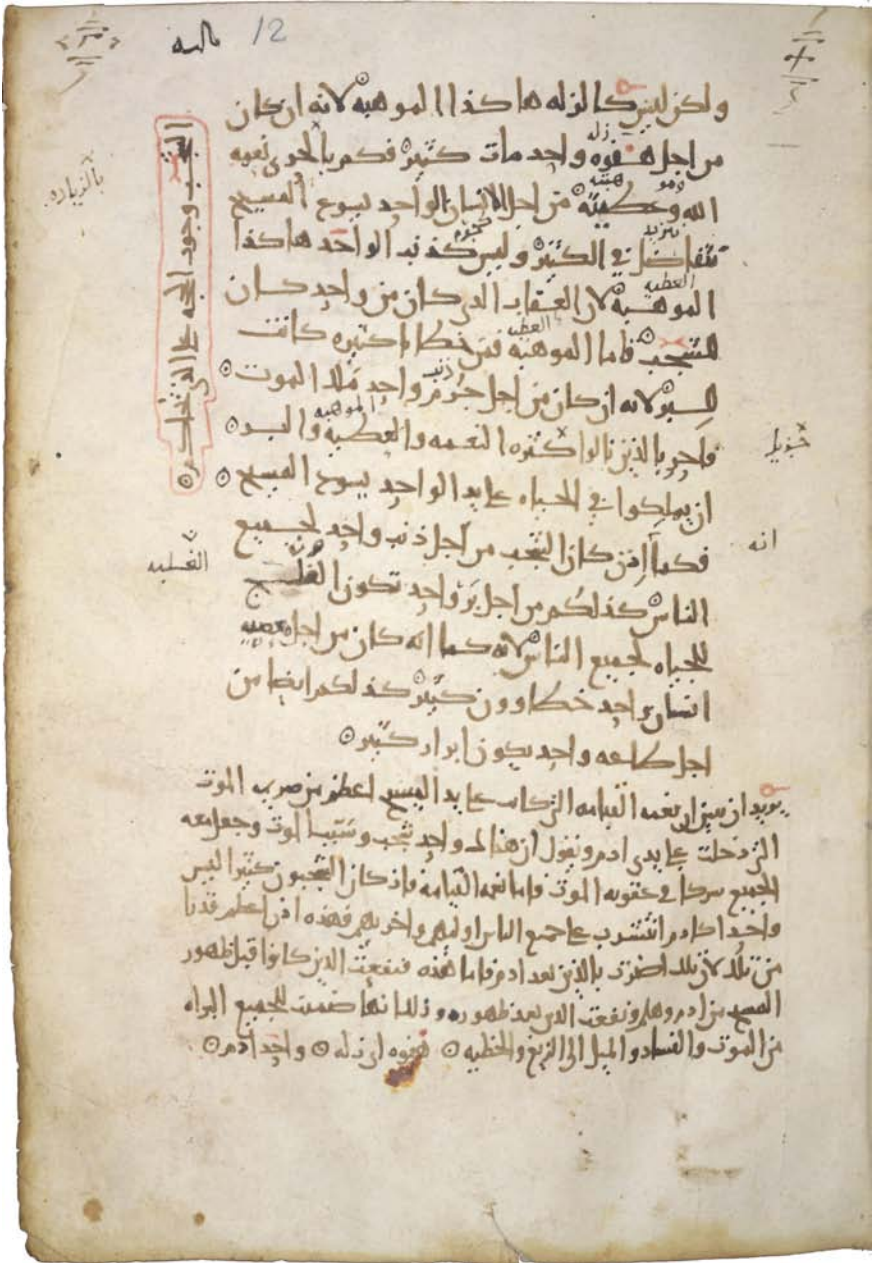 12
ولكن ليس كالزله هاكذا الموهبه لانه ان كان
زله
من اجل هفوه واحد مات كثير فكم بالحرى نعمه
الله وعطيته من اجل الانسان الواحد يسوع المسيح
تزيد
تتفاضل في الكثير وليس كذنب الواحد هاكذا
العطيه
الموهبه لان العقاب الذى كان من واحد كان
العطيه
للشجب فاما الموهبه فمن خطايا كثيره كانت
ذنب
للبر لانه ان كان من اجل جرم واحد ملك الموت
الموهبه
فاحرى الذين نالوا كثره النعمه والعطيه والبر
ان يملكوا في الحياه على يد الواحد يسوع المسيح
فكما اذن كان الشجب من اجل ذنب واحد لجميع
الناس كذلكم من اجل بر واحد تكون الفلج
للحياه لجميع الناس لانه كما انه كان من اجل معصيه
انسان واحد خطاوون كثير كذلكم ايضا من
اجل طاعه واحد يكون ابرار كثير
يريد ان يبين ان نعمه القيامه التى كانت على يد المسيح اعظم من ضرب الموت
التى دخلت على يدى ادم ونقول ان هذا لما واحد شجب وسبب الموت وجعل معه
الجميع شركا في عقوبه الموت واما نعمه القيامه فاذ كان الشجبون كثيرا ليس
واحدا كادم انتشرت على جميع الناس اولهم واخرهم فهذه اذن اعظم قدرا
من تلك لان تلك اضرت بالذين بعد ادم فاما هذه فنفعت الذين كانوا قبل ظهور
المسيح من ادم وهلم ونفعت الذين بعد ظهوره وذلك انها ضمنت للجميع البراه
من الموت والفساد والميل الى الزيغ والخطيه هفوه اى زله واحد ادم
بالزياده
الشجب وجود الحجه على
انه